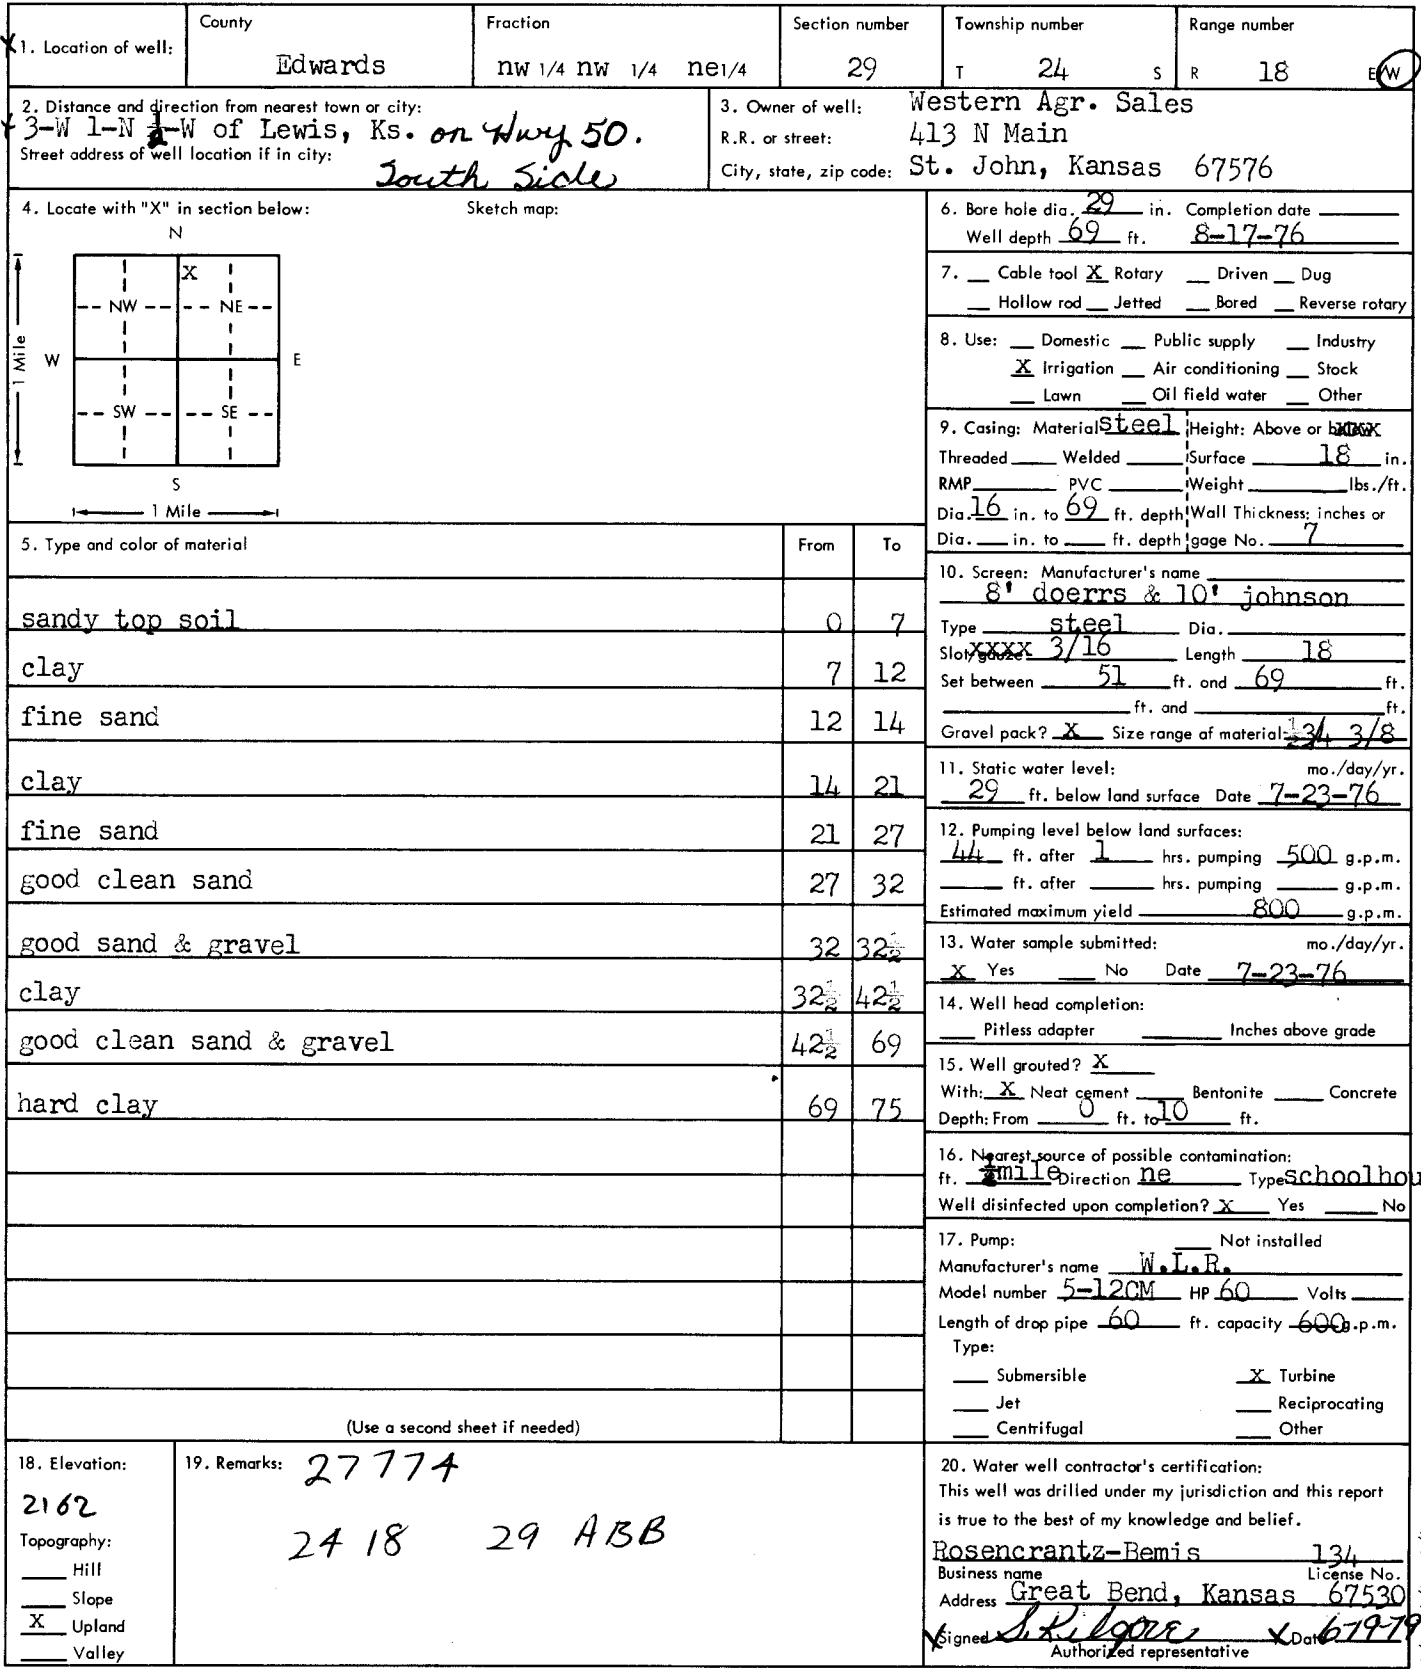 1. Location of well: County Edwards Fraction nw 1/4 nw 1/4 ne1/4 Section number 29 Township number T 24 S Range number R 18 E/W
2. Distance and direction from nearest town or city:
3-W 1-N ½-W of Lewis, Ks. on Hwy 50.
Street address of well location if in city:
South Side
3. Owner of well: Western Agr. Sales
R.R. or street: 413 N Main
City, state, zip code: St. John, Kansas 67576
4. Locate with "X" in section below: Sketch map:
N
X
NW NE
W E
1 Mile
SW SE
S
1 Mile
5. Type and color of material From To
sandy top soil 0 7
clay 7 12
fine sand 12 14
clay 14 21
fine sand 21 27
good clean sand 27 32
good sand & gravel 32 32½
clay 32½ 42½
good clean sand & gravel 42½ 69
hard clay 69 75
(Use a second sheet if needed)
6. Bore hole dia. 29 in. Completion date
Well depth 69 ft. 8-17-76
7. Cable tool X Rotary Driven Dug
Hollow rod Jetted Bored Reverse rotary
8. Use: Domestic Public supply Industry
X Irrigation Air conditioning Stock
Lawn Oil field water Other
9. Casing: Material steel Height: Above or
Threaded Welded Surface 18 in.
RMP PVC Weight lbs./ft.
Dia. 16 in. to 69 ft. depth Wall Thickness: inches or
Dia. in. to ft. depth gage No. 7
10. Screen: Manufacturer's name
8' doerrs & 10' johnson
Type steel Dia.
Slot/gauze 3/16 Length 18
Set between 51 ft. and 69 ft.
ft. and ft.
Gravel pack? X Size range of material: 3/8
11. Static water level: mo./day/yr.
29 ft. below land surface Date 7-23-76
12. Pumping level below land surfaces:
44 ft. after 1 hrs. pumping 500 g.p.m.
ft. after hrs. pumping g.p.m.
Estimated maximum yield 800 g.p.m.
13. Water sample submitted: mo./day/yr.
X Yes No Date 7-23-76
14. Well head completion:
Pitless adapter Inches above grade
15. Well grouted? X
With: X Neat cement Bentonite Concrete
Depth: From 0 ft. to 10 ft.
16. Nearest source of possible contamination:
ft. ½mile Direction ne Type schoolhou
Well disinfected upon completion? X Yes No
17. Pump: Not installed
Manufacturer's name W.L.R.
Model number 5-12CM HP 60 Volts
Length of drop pipe 60 ft. capacity 600 g.p.m.
Type:
Submersible X Turbine
Jet Reciprocating
Centrifugal Other
18. Elevation:
2162
Topography:
Hill
Slope
X Upland
Valley
19. Remarks: 27774
24 18 29 ABB
20. Water well contractor's certification:
This well was drilled under my jurisdiction and this report
is true to the best of my knowledge and belief.
Rosencrantz-Bemis 134
Business name License No.
Address Great Bend, Kansas 67530
Signed S. Kilgore Date 6-19-79
Authorized representative